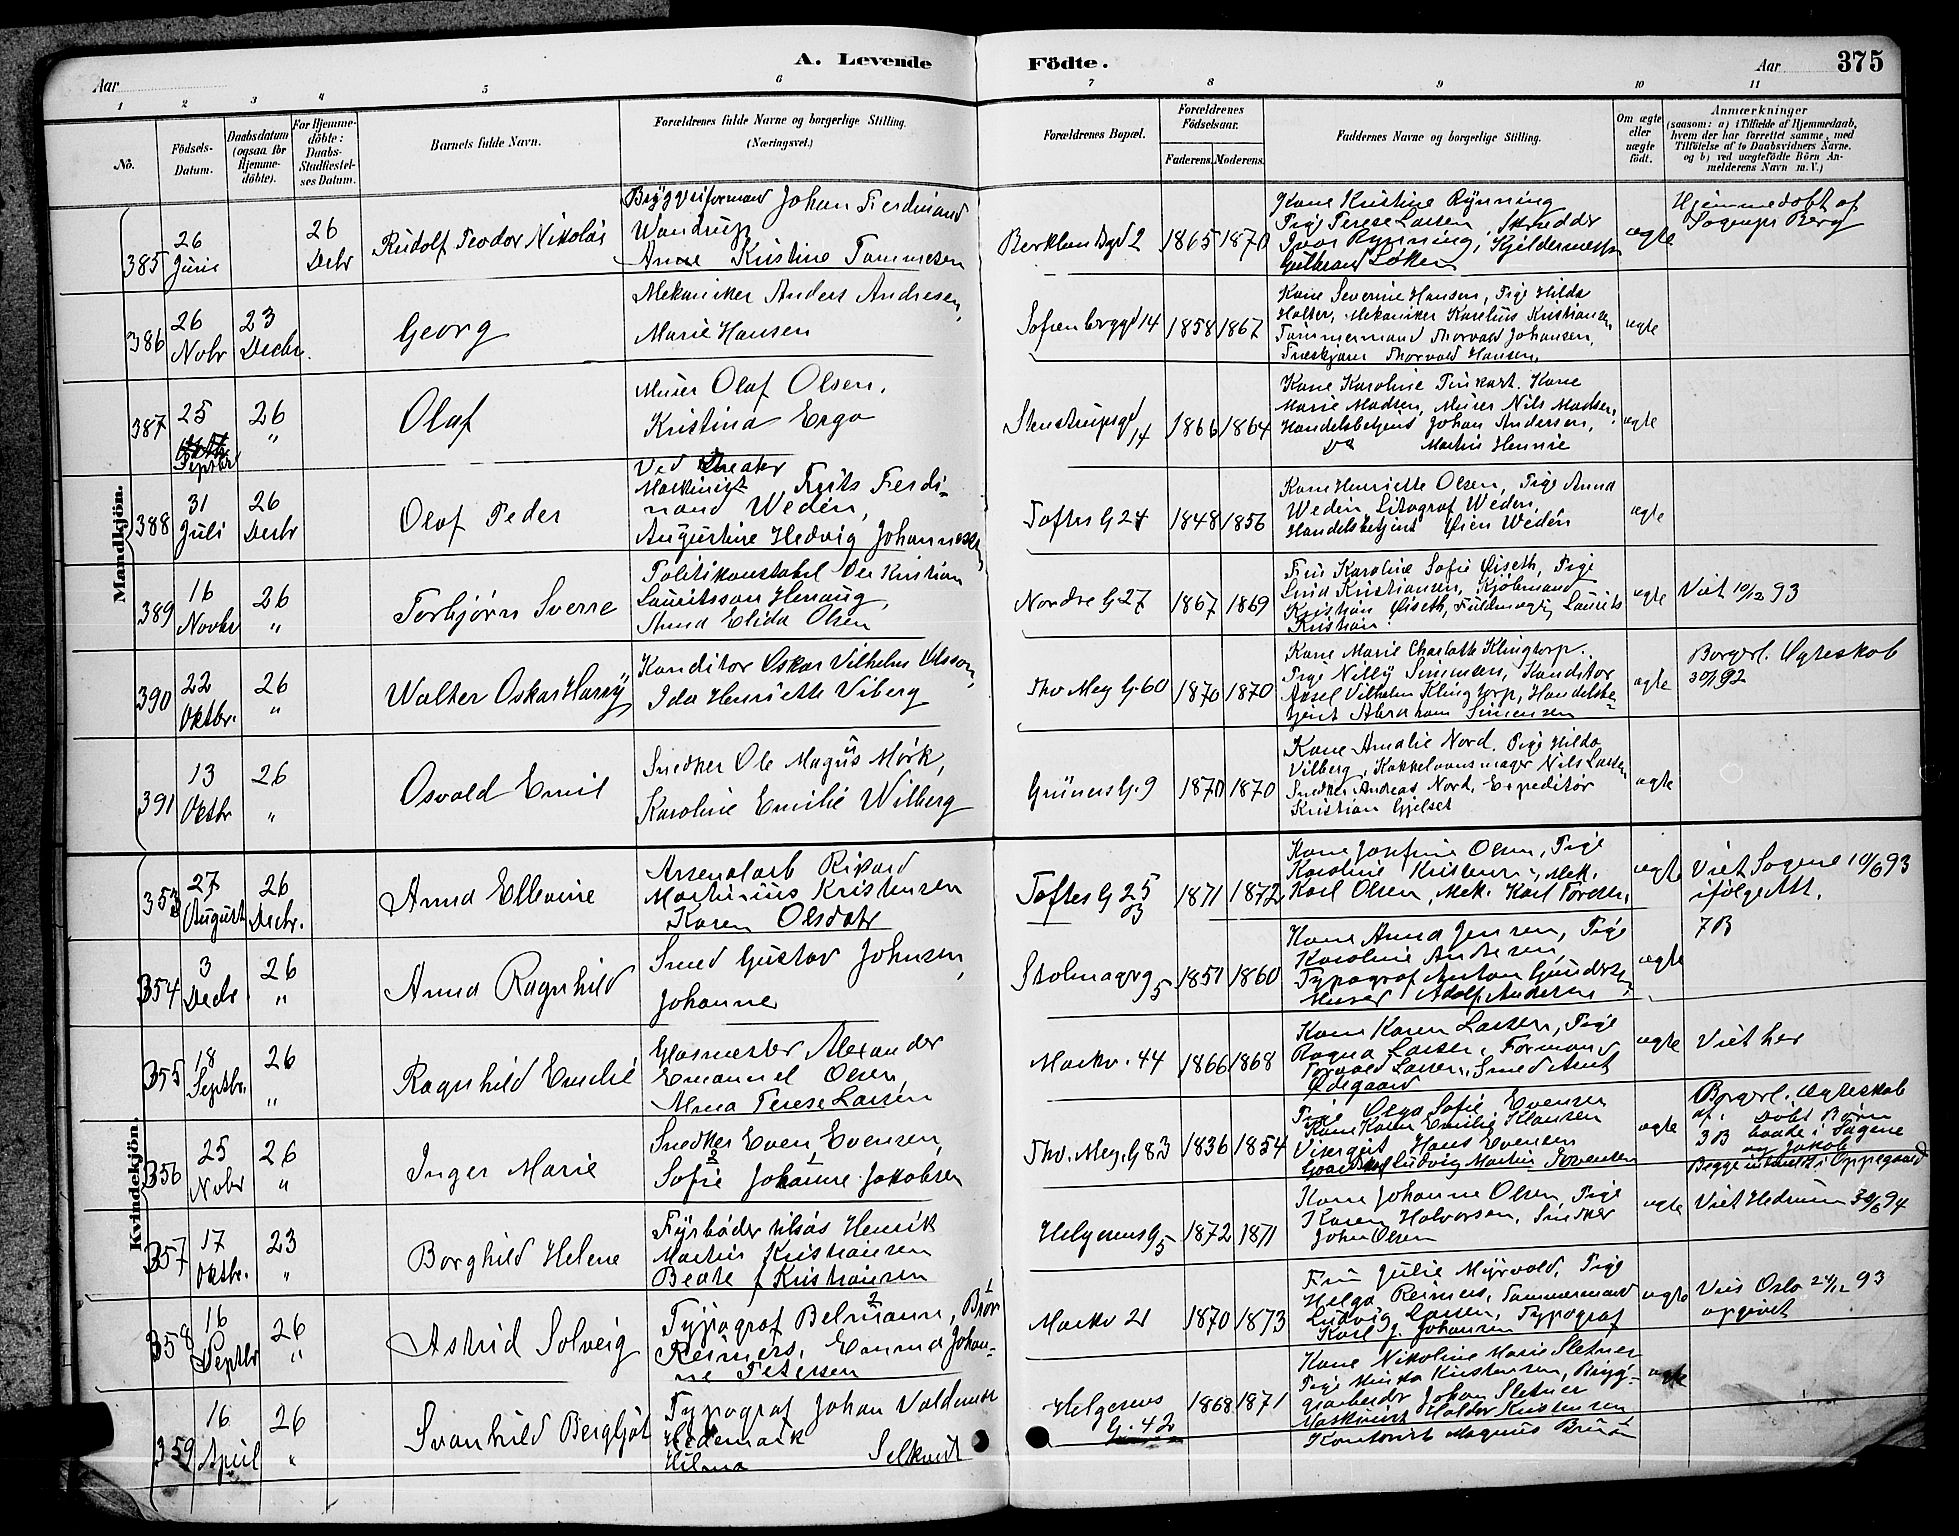 A. Levende Födte.
375
Aar
Aar
1 2 3 4 5 6 7 8 9 10 11
No.
Födsels-
Datum.
Daabsdatum
(ogsaa for
Hjemme-
döbte).
For Hjemme-
döbte:
Daabs-
Stadfæstel-
ses Datum.
Barnets fulde Navn.
Forældrenes fulde Navne og borgerlige Stilling.
(Næringsvei.)
Forældrenes Bopæl.
Forældrenes
Födselsaar.
Faderens.
Moderens.
Faddernes Navne og borgerlige Stilling.
Om ægte
eller
uægte
födt.
Anmærkninger
(saasom: a) i Tilfælde af Hjemmedaab,
hvem der har forrettet samme, med
Tilföielse af to Daabsvidners Navne,
og b) ved uægtefödte Börn An-
melderens Navn m. V.)
Mandkjön.
385
26
Juni
26
Decbr
Rudolf Teodor Nikolai
Johan Ferdinand
Wandrup
Anne Kristine Tommesen
2
1865
1870
Kone Kristine Rynning
Pige Terese Larsen
Ivar Rynning,
Gulbrand Løken
ægte
Hjemmedøbt af
Sognepr Berg
386
26
Novbr
23
Decbr.
Georg
Mekaniker Anders Andresen,
Marie Hansen
Sofienberggd 14
1858
1867
Kone Severine Hansen, Pige Hilda
Holter, Mekaniker Karelius Kristiansen,
Tømmermand Thorvald Johansen,
Thorvald Hansen,
ægte
387
25
Septbr
26
"
Olaf
Murer Olaf Olsen,
Kristina Ergo
Stenstrupsgd
14
1866
1864
Kone Karoline Kone
Marie Madsen, Murer Nils Madsen,
Handelsbetjent Johan Andersen,
Do Martin Hennie
ægte
388
31
Juli
26
Decbr
Olaf Peder
Ved Theater
Maskinist Frits Ferdi-
nand Wedén,
Augustine Hedvig Johannessen
Toftes G 24
1848
1856
Kone Henriette Olsen, Pige Anna
Weden, Litograf Weden,
Handelsbetjent Øien Wedén
ægte
389
16
Novbr
26
"
Torbjørn Sverre
Politikonstabel Ole Kristian
Lauritsson Heraug,
Anna Elida Olsen
Nordre G. 27
1867
1869
Fru Karoline Sofie Øiseth, Pige
Kristiansen, Kjøbmand
Kristian Øiseth, Fuldmægtig Laurits
Kristian
ægte
Viet 10/12 93
390
22
Oktbr.
26
"
Walter Oskar Harry
Konditor Oskar Vilhelm Olsson,
Ida Henriette Viberg
Thv. Mey G. 60
1870
1870
Kone Marie Charlotte Klingtorp.
Pige Nilly Simensen, Konditor
Axel Vilhelm Klingtorp, Handelsbe-
tjent Abraham Simensen
ægte
Borgerl. Ægteskab
92
391
13
Oktbr
26
"
Osvald Emil
Snedker Ole Magnus Mørk,
Karoline Emilie Wilberg
Grüners G. 9
1870
1870
Kone Amalie Nord, Pige Hilda
Vilberg, Kakkelovnsmager Nils Larsen
Snedker Andreas Nord, Expeditør
Kristian Gjelset
ægte
Kvindekjön.
353
27
August
26
Decbr.
Anna Ellevine
Arsenalarb Rikard
Martinius Kristensen
Karen Olsdatr
Toftes G 25
B
1871
1872
Kone Josefine Olsen, Pige
Karoline Kristensen, Mek.
Karl Olsen, Mek. Karl Tordsen,
ægte
Viet Sagene 10/6 93
ifølge Att.
7B
354
3
Decbr
26
"
Anna Ragnhild
Smed Gustav Johnsen,
Johanne
Stolmagrg
5
1851
1860
Kone Anna Jensen, Pige
Karoline Andersen,
Typograf Anton Gundersen,
Murer Adolf Andersen
ægte
355
18
Septbr.
26
"
Ragnhild Emilie
Glasmester Alexander
Emanuel Olsen,
Alma Terese Larsen
Markv. 44
1866
1868
Kone Karen Larsen, Pige
Ragna Larsen, Formand
Torvald Larsen, Smed Arnt
Ødegaard
ægte
Viet her
356
25
Novbr
26
"
Inger Marie
Snedker Even Evensen,
Sofie Johanne Jakobsen
Thv. Mey. G 83
1836
1854
Pige Olga Sofie Evensen
Kone Karen Emilie Hansen
Visergut Hans Evensen
Ludvig Martin Evensen
ægte
Borgerl. Ægteskab
af. Døbt Børn
3B baade i Sagene
og Jakob
Begge indmeldt i Oppegaard
357
17
Oktbr.
23
"
Borghild Helene
Fyrbøder Henrik
Martin Kristiansen
Beate f Kristiansen
Helgesens G
5
1872
1871
Kone Johanne Olsen, Pige
Karen Halvorsen, Snedker
John Olsen
ægte
Viet Hedrum 30/6 94
358
16
Septbr
26
"
Astrid Solveig
Typograf
Reimers, Emma Johan-
ne Petersen
Markv 21
1870
1873
Fru Julie Myrvold, Pige
Helga Reimers, Tømmermand
Ludvig Larsen, Typograf
Karl J. Johansen
ægte
Viet Oslo 24/12 93
opgivet
359
16
April
26
"
Svanhild Bergljot
Typograf Johan Valdemar
Hedemark
Hilma Selkvist
Helgesens
G. 42
1868
1871
Kone Nikoline Marie Sletner
Pige Kristensen, Brygg-
eriarbeider Johan Sletner
Maskinist Haldor Kristensen
Kontorist Magnus Bruun
ægte